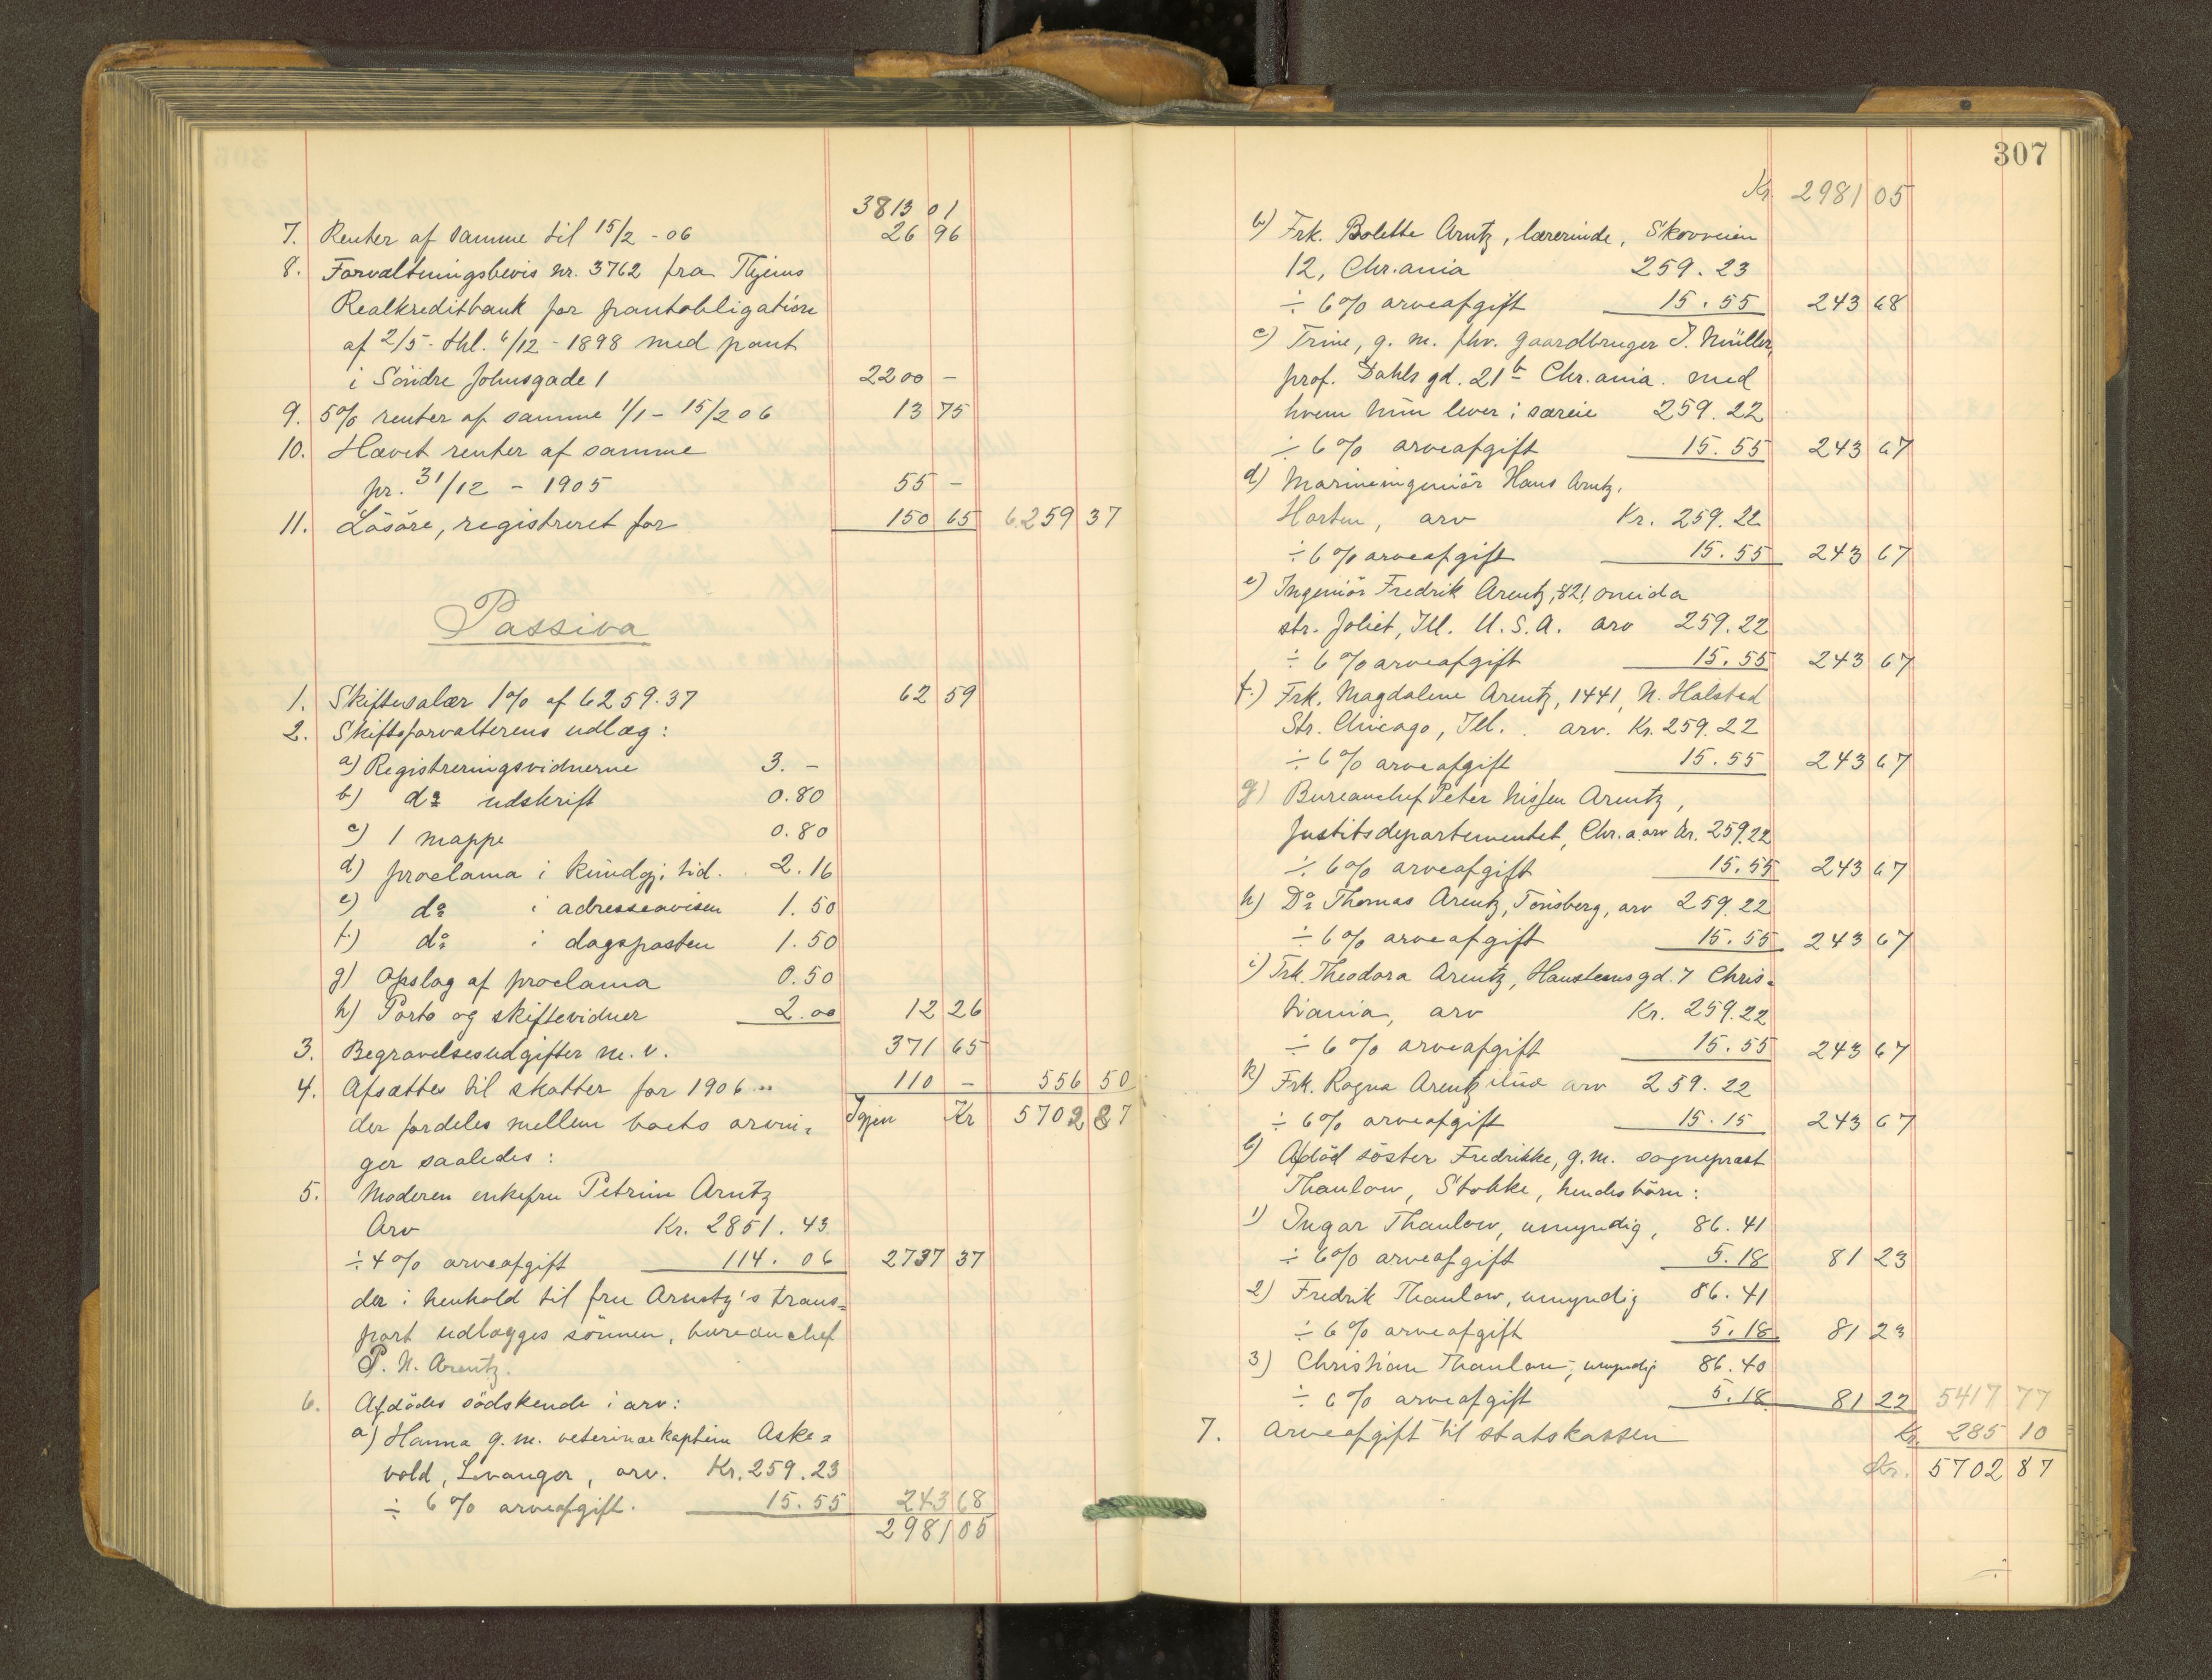 3813 01
7. Renter af samme til 15/2 - 06 26 96
8. Forvaltningsbevis nr. 3762 fra Thjems
Realkreditbank for pantobligation
af 2/5 - thl. 6/12 - 1898 med pant
i Söndre Johnsgade 1 2200 -
9. 5% renter af samme 1/1 - 15/2 06 13 75
10. Hævet renter af samme
pr. 31/12 - 1905 55 -
11. Lösöre, registreret for 150 65 6259 37
Passiva
1. Skiftesalær 1% af 6259.37 62 59
2. Skifteforvalterens udlæg:
a) Registreringsvidnerne 3. -
b) do udskrift 0.80
c) 1 mappe 0.80
d) proclama i kundgj. tid. 2.16
e) do i adresseavisen 1.50
f) do i dagsposten 1.50
g) Opslag af proclama 0.50
h) Porto og skiftevidner 2.00 12 26
3. Begravelsesudgifter m. v. 371 65
4. Afsættes til skatter for 1906 110 - 556 50
der fordeles mellem boets arvin= Igjen Kr 5702 87
ger saaledes:
5. Moderen enkefru Petrine Arntz
Arv Kr. 2851.43
÷ 4% arveafgift 114.06 2737 37
der i henhold til fru Arentz's trans=
port udlægges sönnen, bureauchef
P. N. Arentz.
6. Afdödes södskende i arv:
a) Hanna g. m. veterinærkaptein Aske=
vold, Levanger, arv. Kr. 259.23
÷ 6% arveafgift. 15.55 243 68
2981 05
307
Kr 2981 05
b) Frk. Bolette Arntz, lærerinde, Skovveien
12, Chr.ania 259.23
÷ 6% arveafgift 15.55 243 68
c) Trine, g. m. fhv. gaardbruger J. Müller,
prof. Dahls gd. 21b Chr.ania. med
hvem hun lever i særeie 259.22
÷ 6% arveafgift 15.55 243 67
d) Marineingeniör Hans Arntz,
Horten, arv Kr. 259.22
÷ 6% arveafgift 15.55 243 67
e) Ingeniör Fredrik Arentz, 821 Oneida
str. Joliet, Ill. U.S.A. arv 259.22
÷ 6% arveafgift 15.55 243 67
f.) Frk. Magdalene Arentz, 1441, N. Halsted
Str. Chicago, Ill. arv. Kr. 259.22
÷ 6% arveafgift 15.55 243 67
g) Bureauchef Peter Nissen Arentz,
Justitsdepartementet, Chr.a. arv Kr. 259.22
÷ 6% arveafgift 15.55 243 67
h) Do Thomas Arentz, Tönsberg, arv 259.22
÷ 6% arveafgift 15.55 243 67
i) Frk. Theodora Arentz, Hansteensgd. 7 Chris=
tiania, arv Kr. 259.22
÷ 6% arveafgift 15.55 243 67
k) Frk. Ragna Arentz arv 259.22
÷ 6% arveafgift 15.15 243 67
l) Afdöd söster Fredrikke, g. m. sogneprest
Thaulow, Stokke, hendes börn:
1) Ingar Thaulow, umyndig, 86.41
÷ 6% arveafgift 5.18 81 23
2) Fredrik Thaulow, umyndig 86.41
÷ 6% arveafgift 5.18 81 23
3) Christian Thaulow, umyndig 86.40
÷ 6% arveafgift 5.18 81 22 5417 77
7. Arveafgift til statskassen Kr. 285 10
Kr. 5702 87